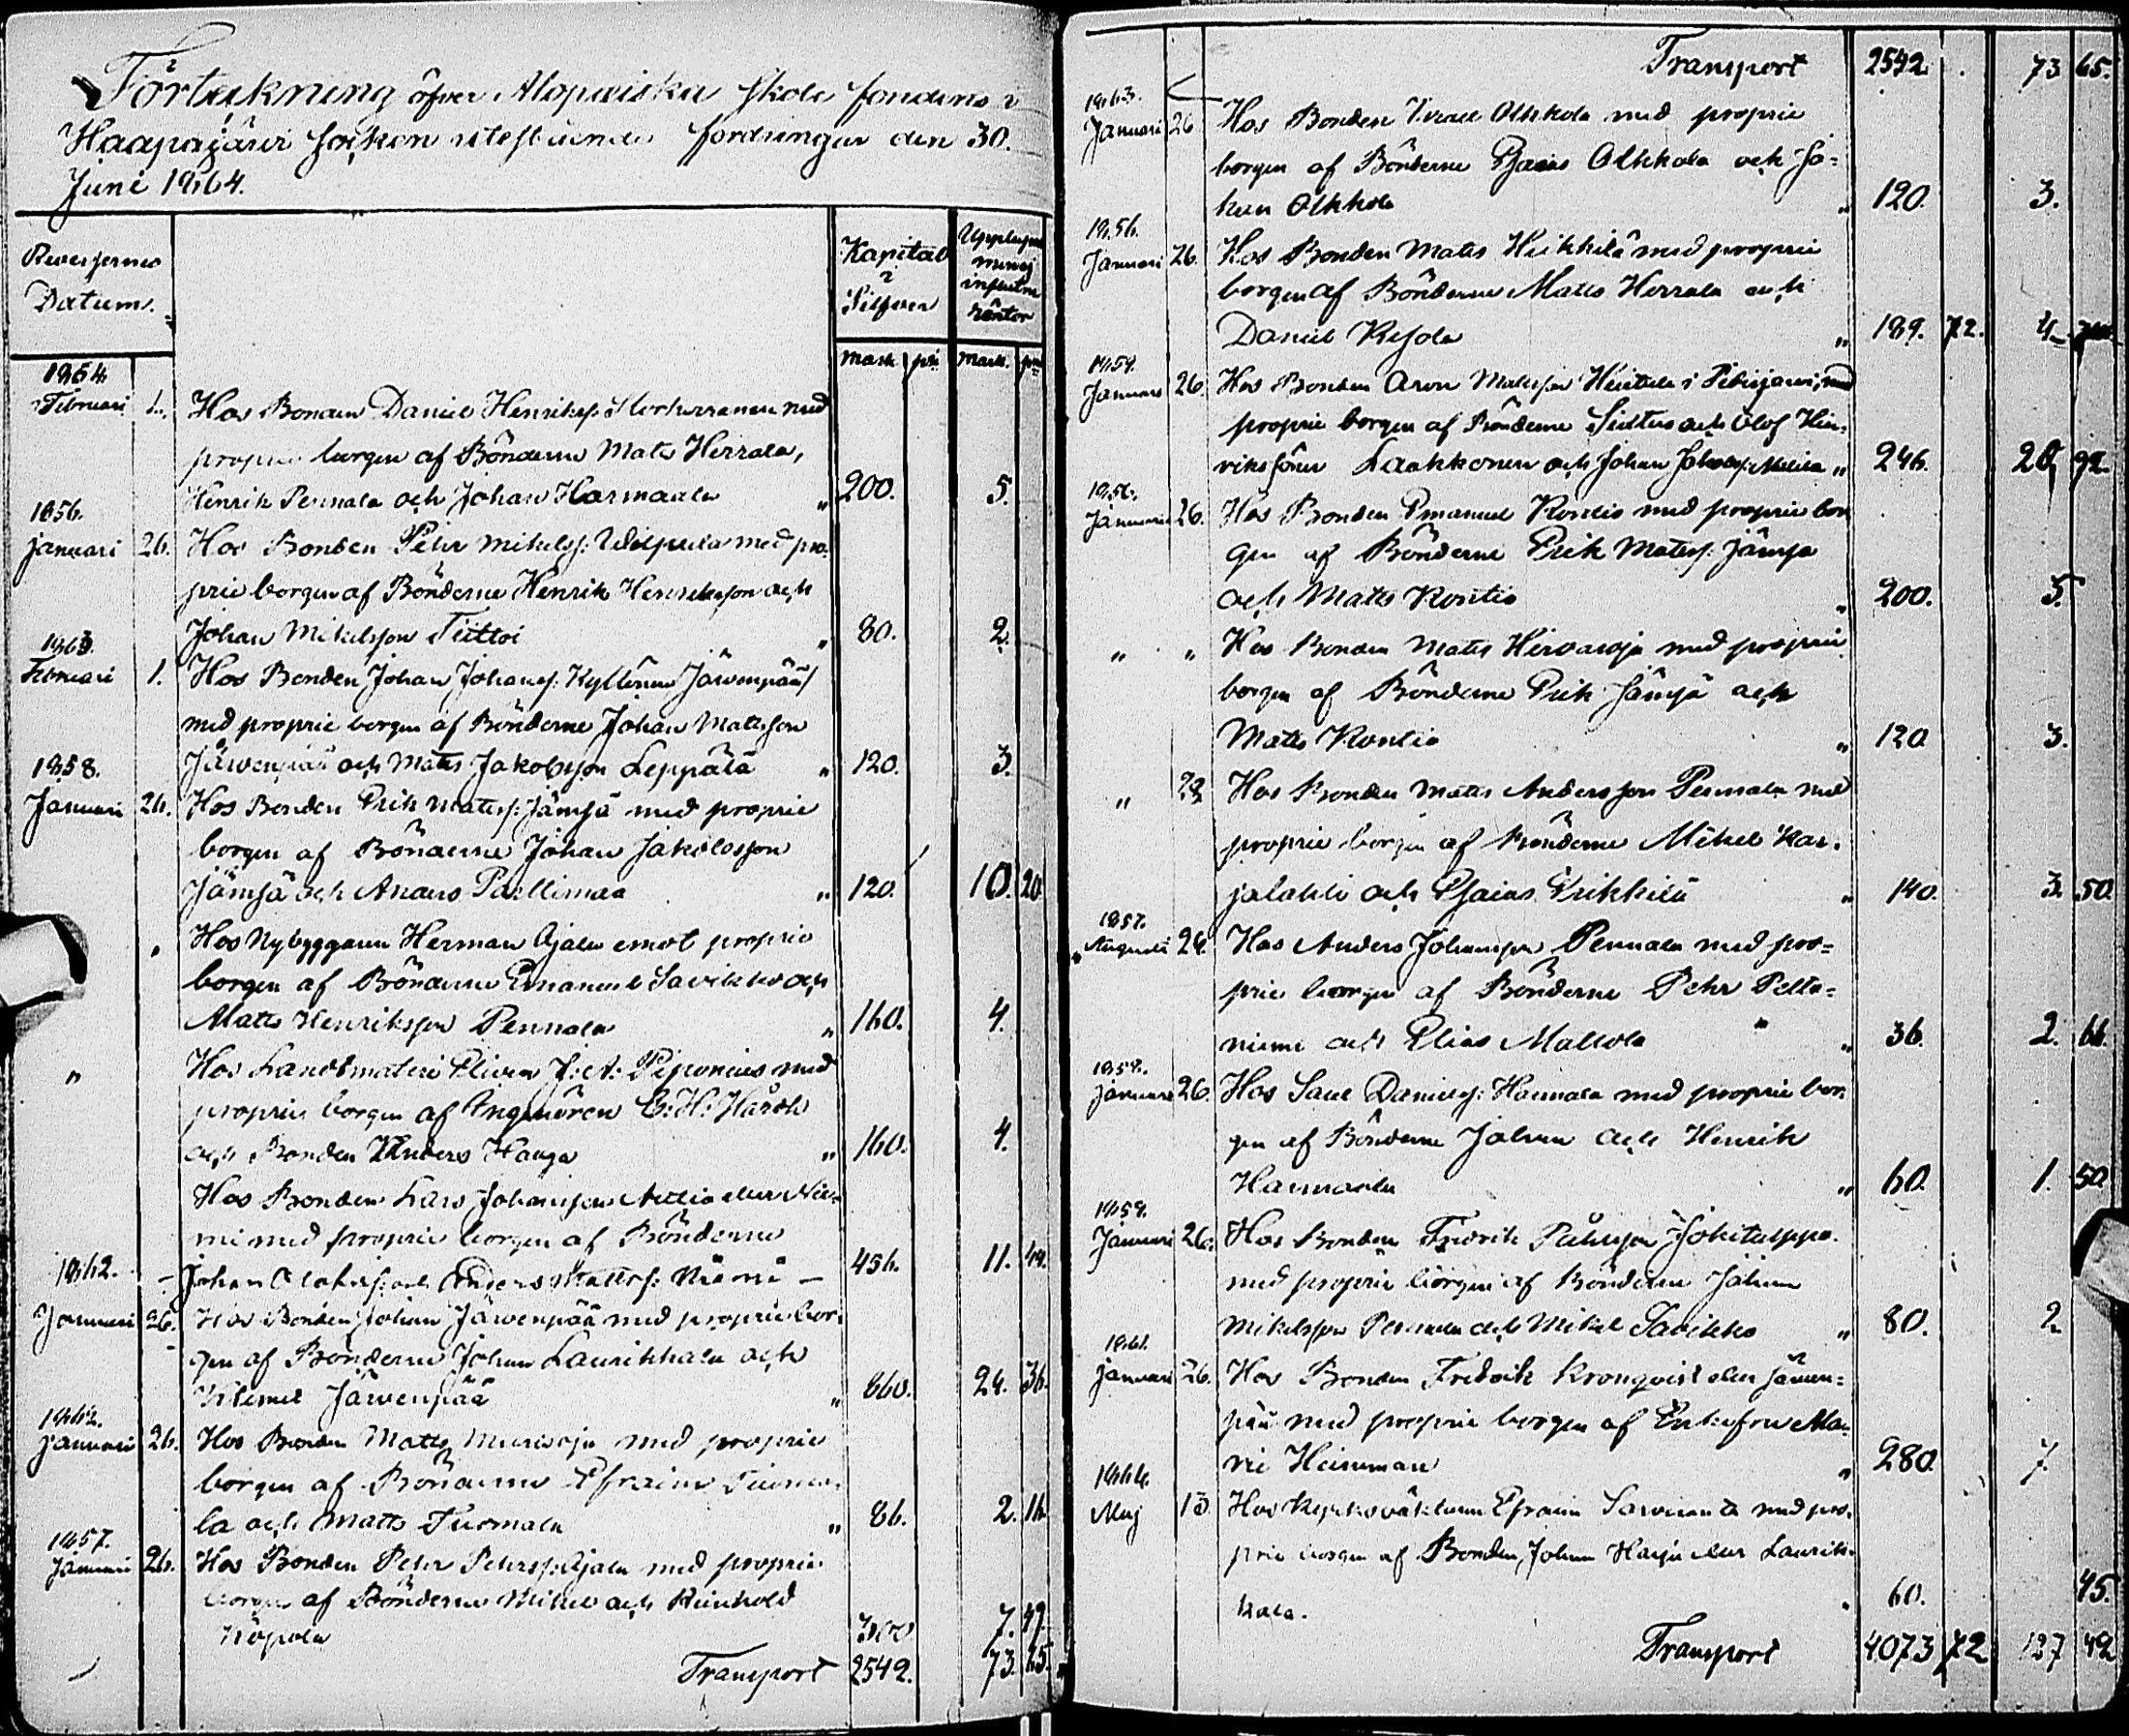 Förteckning öfver Alopaeiska Skole fondens i
Haapajärvi socken utestående fordringar den 30.
Juni 1864.
Reversernes
Datum.
Kapital
i
Silfver
Upplupne
men ej
influtne
räntor
Mark pi: Mark. pi:
1864
Februari 1. Hos Bonden Daniel Henrikss: med
proprie borgen af Bönderne Matts Herrala,
Henrik Pennala och Johan Harmaala " 200. 5.
1856.
Januari 26. Hos Bonden Pehr Mikelss: med pro-
prie borgen af Bönderne Henrik Henriksson och
Johan Mikelsson Tiittoi " 80. 2.
1863.
Februari 1. Hos Bonden Johan Johanss: Kyllönen Järvenpää
med proprie borgen af Bönderne Johan Mattsson
Järvenpää och Matts Jakobsson Leppälä " 120. 3.
1858.
Januari 26. Hos Bonden Erik Mattss: Jämsä med proprie
borgen af Bönderne Johan Jakobsson
Jämsä och Anders " 120. 10. 20
" Hos Nybyggaren Herman Ojala emot proprie
borgen af Bönderne Emanuel Savikko och
Matts Henriksson Pennala " 160. 4.
" Hos Landtmäteri Eleven med
proprie borgen af Ingeniören C: H: Hårdh
och Bonden Anders Hauga " 160. 4.
Hos Bonden Lars Johansson eller Nie-
mi med proprie borgen af Bönderne
Johan och Anders Mattss: Niemi – 456. 11. 44.
1862.
Januari 26. Hos Bonden Johan Järvenpää med proprie bor-
gen af Bönderne Johan Laurikkala och
Klemet Järvenpää " 860. 24. 36.
1862.
Januari 26. Hos Bonden Matts med proprie
borgen af Bönderne Efraim Tuoma-
la och Matts Tuomala " 86. 2. 16.
1857.
Januari 26. Hos Bonden Pehr Pehrss: Ojala med proprie
borgen af Bönderne Mikel och Reinhold
Köpola 300 7. 49.
Transport 2542. 73. 65.
Transport 2542 73 65.
1863.
Januari 26 Hos Bonden Israel Olkkola med proprie
borgen af Bönderne Esaias Olkkola och Jo-
han Olkkola " 120. 3.
1856.
Januari 26. Hos Bonden Matts Heikkilä med proprie
borgen af Bönderne Matts Herrala och
Daniel " 189. 72. 4.
1859.
Januari 26. Hos Bonden Aron Mattsson i Pidisjärvi, med
proprie borgen af Bönderne och Olof Hen-
rikssöner Laakkonen och Johan " 246. 20, 92.
1856.
Januari 26. Hos Bonden Emanuel Kontio med proprie bor
gen af Bönderne Erik Mattss: Jämsä
och Matts Kontio " 200. 5.
" " Hos Bonden Matts Hirvaoja med proprie
borgen af Bönderne Erik Jämsä och
Matts Kontio " 120 3.
" 29 Hos Bonden Matts Andersson Pennala med
proprie borgen af Bönderne Mikel Kar-
jalahti och Esaias Erikkilä " 140. 3. 50.
1857.
Augusti 24. Hos Anders Johansson Pennala med pro-
prie borgen af Bönderne Pehr Pelto-
niemi och Elias Mattola " 36. 2. 66.
1858.
Januari 26. Hos Saul Danielss: Harmala med proprie bor-
gen af Bönderne Johan och Henrik
Harmaala " 60. 1. 50
1859.
Januari 26. Hos Bonden Fredrik Påhlsson Jokitalppo
med proprie borgen af Bönderne Johan
Mikelsson Pennala och Mikel Savikko " 80. 2
1861.
Januari 26. Hos Bonden Fredrik Kronqvist eller Järven-
pää med proprie borgen af Enkefru Ma-
rie Heineman " 280. 7.
1864.
Maj 13. Hos Kyrkoväktaren Efraim med pro-
prie borgen af Bonden Johan Harju eller Laurik-
kala. " 60. 45.
Transport 4073 72 127 42